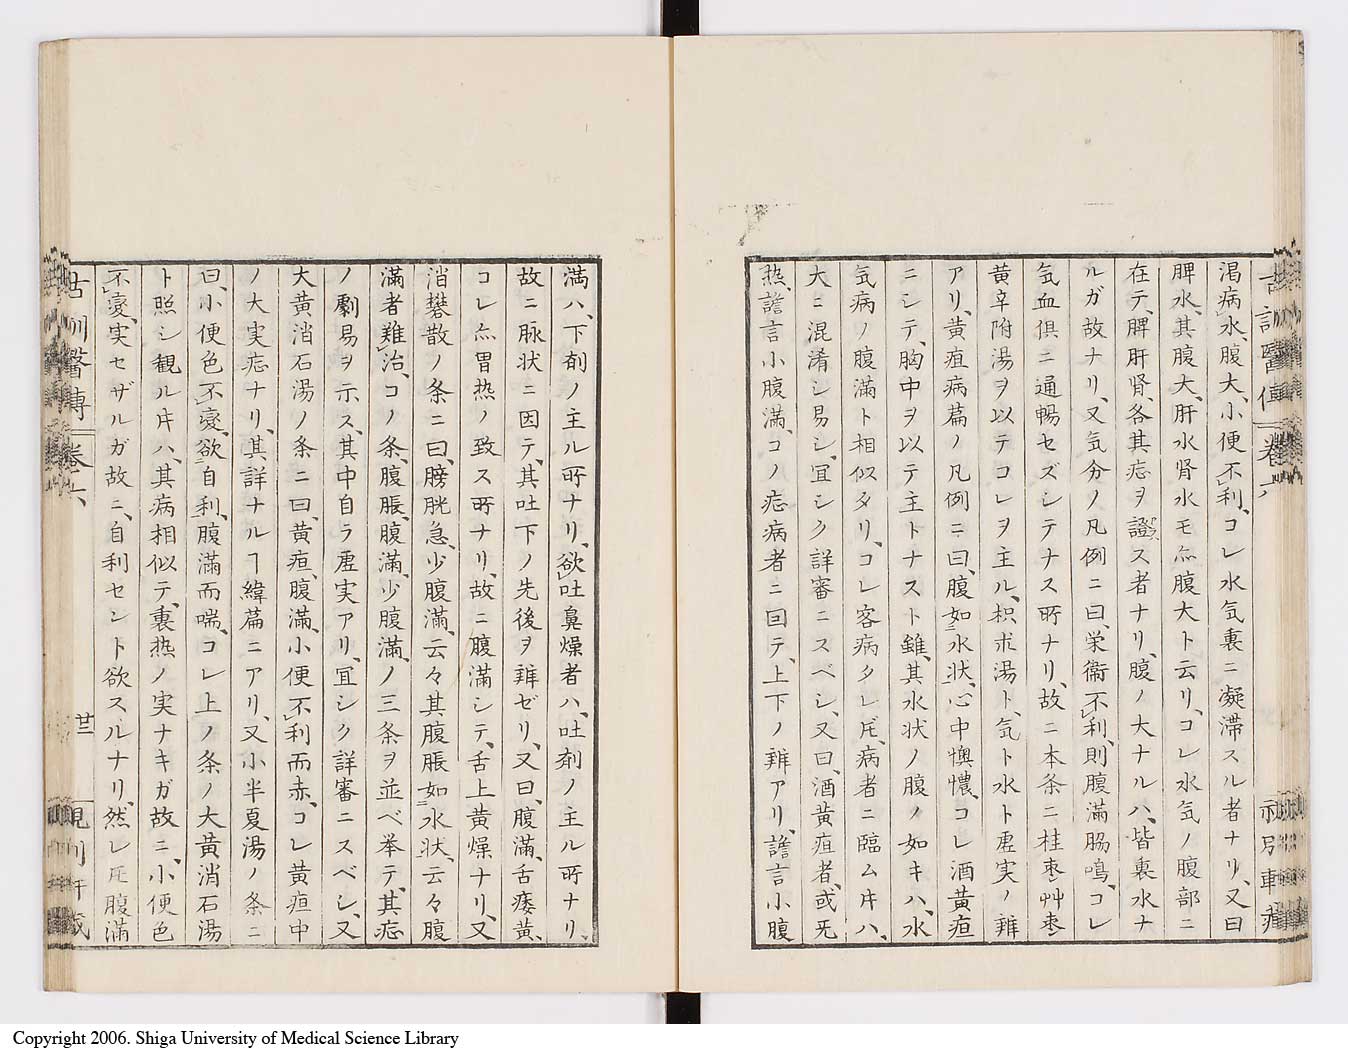 渇病、水、腹大、小便不利、コレ水気裏ニ凝滞スル者ナリ、又曰
脾水、其腹大、肝水腎水モ亦腹大ト云リ、コレ水気ノ腹部ニ
在テ、脾肝腎、各其症ヲ證ス者ナリ、腹ノ大ナルハ、皆裏水ナ
ルガ故ナリ、又気分ノ凡例ニ曰、栄衞不利、則腹満脇鳴、コレ
気血倶ニ通暢セズシテナス所ナリ、故ニ本条ニ桂枣艸枣
黄辛附湯ヲ以テコレヲ主ル、枳朮湯ト、気ト水ト虚実ノ辨
アリ、黄疸病篇ノ凡例ニ曰、腹如水状、心中懊憹、コレ酒黄疸
ニシテ、胸中ヲ以テ主トナスト雖、其水状ノ腹ノ如キハ、水
気病ノ腹満ト相似タリ、コレ客病タレ𪜈、病者ニ臨ムキハ、
大ニ混淆シ易シ、冝シク詳審ニスベシ、又曰、酒黄疸者、或无
熱、譫言小腹満、コノ症病者ニ回テ、上下ノ辨アリ、譫言小腹
満ハ、下剤ノ主ル所ナリ、欲吐鼻燥者ハ、吐剤ノ主ル所ナリ、
故ニ脉状ニ因テ、其吐下ノ先後ヲ辨ゼリ、又曰、腹満、舌痿黄、
コレ亦胃熱ノ致ス所ナリ、故ニ腹満シテ、舌上黄燥ナリ、又
消礬散ノ条ニ曰、膀胱急、少腹満、云々其腹脹如水状、云々腹
満者難治、コノ条、腹脹、腹満、少腹満、ノ三条ヲ並ベ挙テ、其症
ノ劇易ヲ示ス、其中自ラ虚実アリ、冝シク詳審ニスベシ、又
大黄消石湯ノ条ニ曰、黄疸、腹満、小便不利而赤、コレ黄疸中
ノ大実症ナリ、其詳ナルヿ緯篇ニアリ、又小半夏湯ノ条ニ
曰、小便色不変、欲自利、腹満而喘、コレ上ノ条ノ大黄消石湯
ト照シ観ル𪜈ハ、其病相似テ、裏熱ノ実ナキガ故ニ、小便色
不変、実セザルガ故ニ、自利セント欲スルナリ、然レ𪜈腹満
古訓醫傳 卷六
廿三
Copyright 2006. Shiga University of Medical Science Library